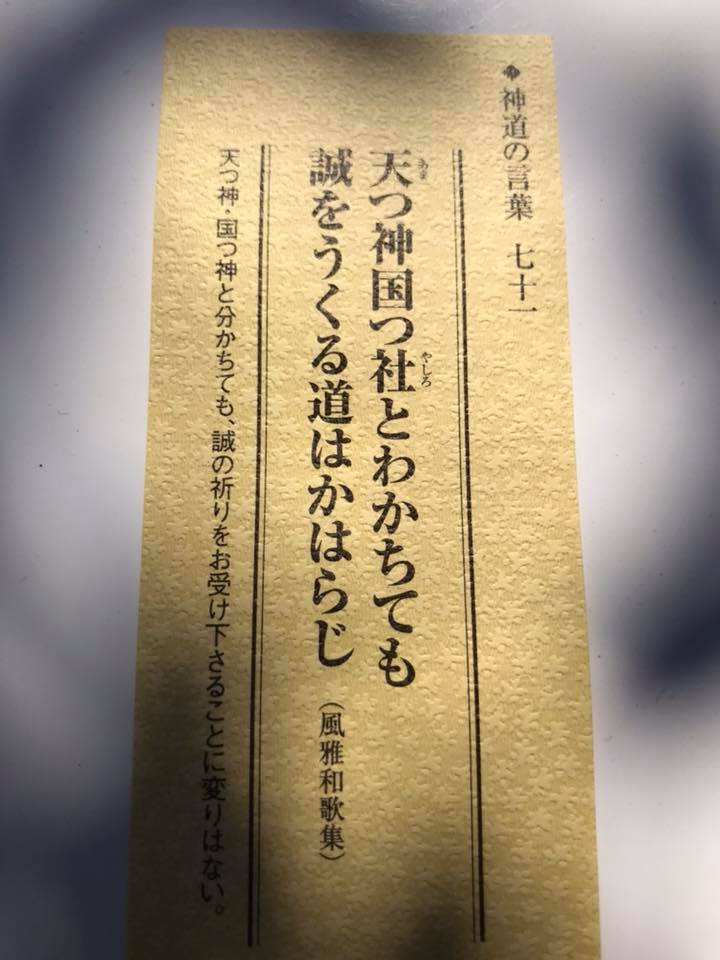 神道の言葉 七十一
天つ神国つ社とわかちても
あま
やしろ
誠をうくる道はかはらじ
(風雅和歌集)
天つ神・国つ神と分かちても、誠の祈りをお受け下さることに変りはない。